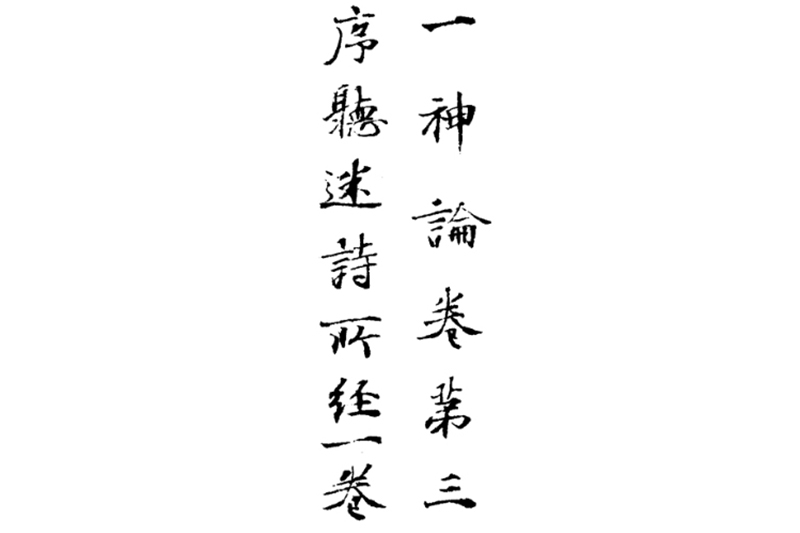 一神論卷第三
序聽迷詩所經一卷